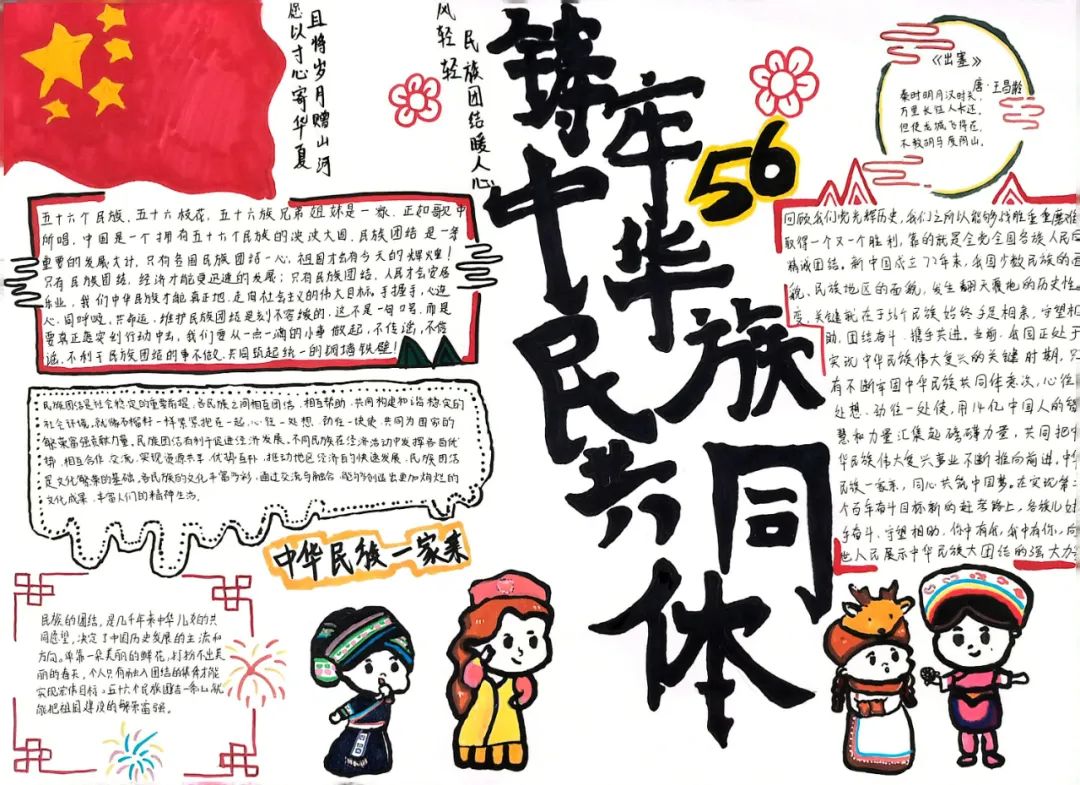 且将岁月赠山河
愿以寸心寄华夏
风轻轻
民族团结暖人心
铸牢中华民族共同体
56
《出塞》
唐·王昌龄
秦时明月汉时关,
万里长征人未还。
但使龙城飞将在,
不教胡马度阴山。
五十六个民族、五十六枝花,五十六族兄弟姐妹是一家,正如歌中
所唱,中国是一个拥有五十六个民族的泱泱大国,民族团结是一条
重要的发展大计,只有各国民族团结一心,祖国才会有今天的辉煌!
只有民族团结,经济才能更迅速的发展;只有民族团结,人民才会安居
乐业,我们中华民族才能真正地走向社会主义的伟大目标。手握手,心连
心,同呼吸,共命运,维护民族团结是刻不容缓的,这不是一句口号,而是
要真正落实到行动中去,我们要从一点一滴的小事做起,不传谣,不信
谣,不利于民族团结的事不做,共同筑起统一的铜墙铁壁!
民族团结是社会稳定的重要前提,各民族之间相互团结、相互帮助,共同构建和谐稳定的
社会环境。就像石榴籽一样紧紧抱在一起,心往一处想,劲往一快使,共同为国家的
繁荣富强贡献力量。民族团结有利于促进经济发展。不同民族在经济活动中发挥各自优
势,相互合作、交流,实现资源共享、优势互补,推动地区经济的快速发展,民族团结
是文化繁荣的基础,各民族的文化丰富多彩,通过交流与融合,能够创造出更加灿烂的
文化成果,丰富人们的精神生活。
中华民族一家亲
民族的团结,是几千年来中华儿女的共
同愿望,决定了中国历史发展的主流和
方向。单靠一朵美丽的鲜花,打扮不出美
丽的春天,个人只有融入团结的集体才能
实现宏伟目标。五十六个民族团结一条心,就
能把祖国建设的繁荣富强。
回顾我们党光辉历史,我们之所以能够战胜重重磨难
取得一个又一个胜利,靠的就是全党全国各族人民
精诚团结。新中国成立72年来,我国少数民族的面
貌、民族地区的面貌,发生翻天覆地的历史性
变,关键就在于56个民族始终手足相亲、守望相
助、团结奋斗、携手共进。当前,我国正处于
实现中华民族伟大复兴的关键时期,只
有不断牢固中华民族共同体意识,心往
处想、劲往一处使,用14亿中国人的智
慧和力量汇集起磅礴力量,共同把中
华民族伟大复兴事业不断推向前进,中华
民族一家亲,同心共筑中国梦。在实现第二
个百年奋斗目标新的赶考路上,各族儿女
手奋斗、守望相助,你中有我,我中有你,向
世人民展示中华民族大团结的强大力